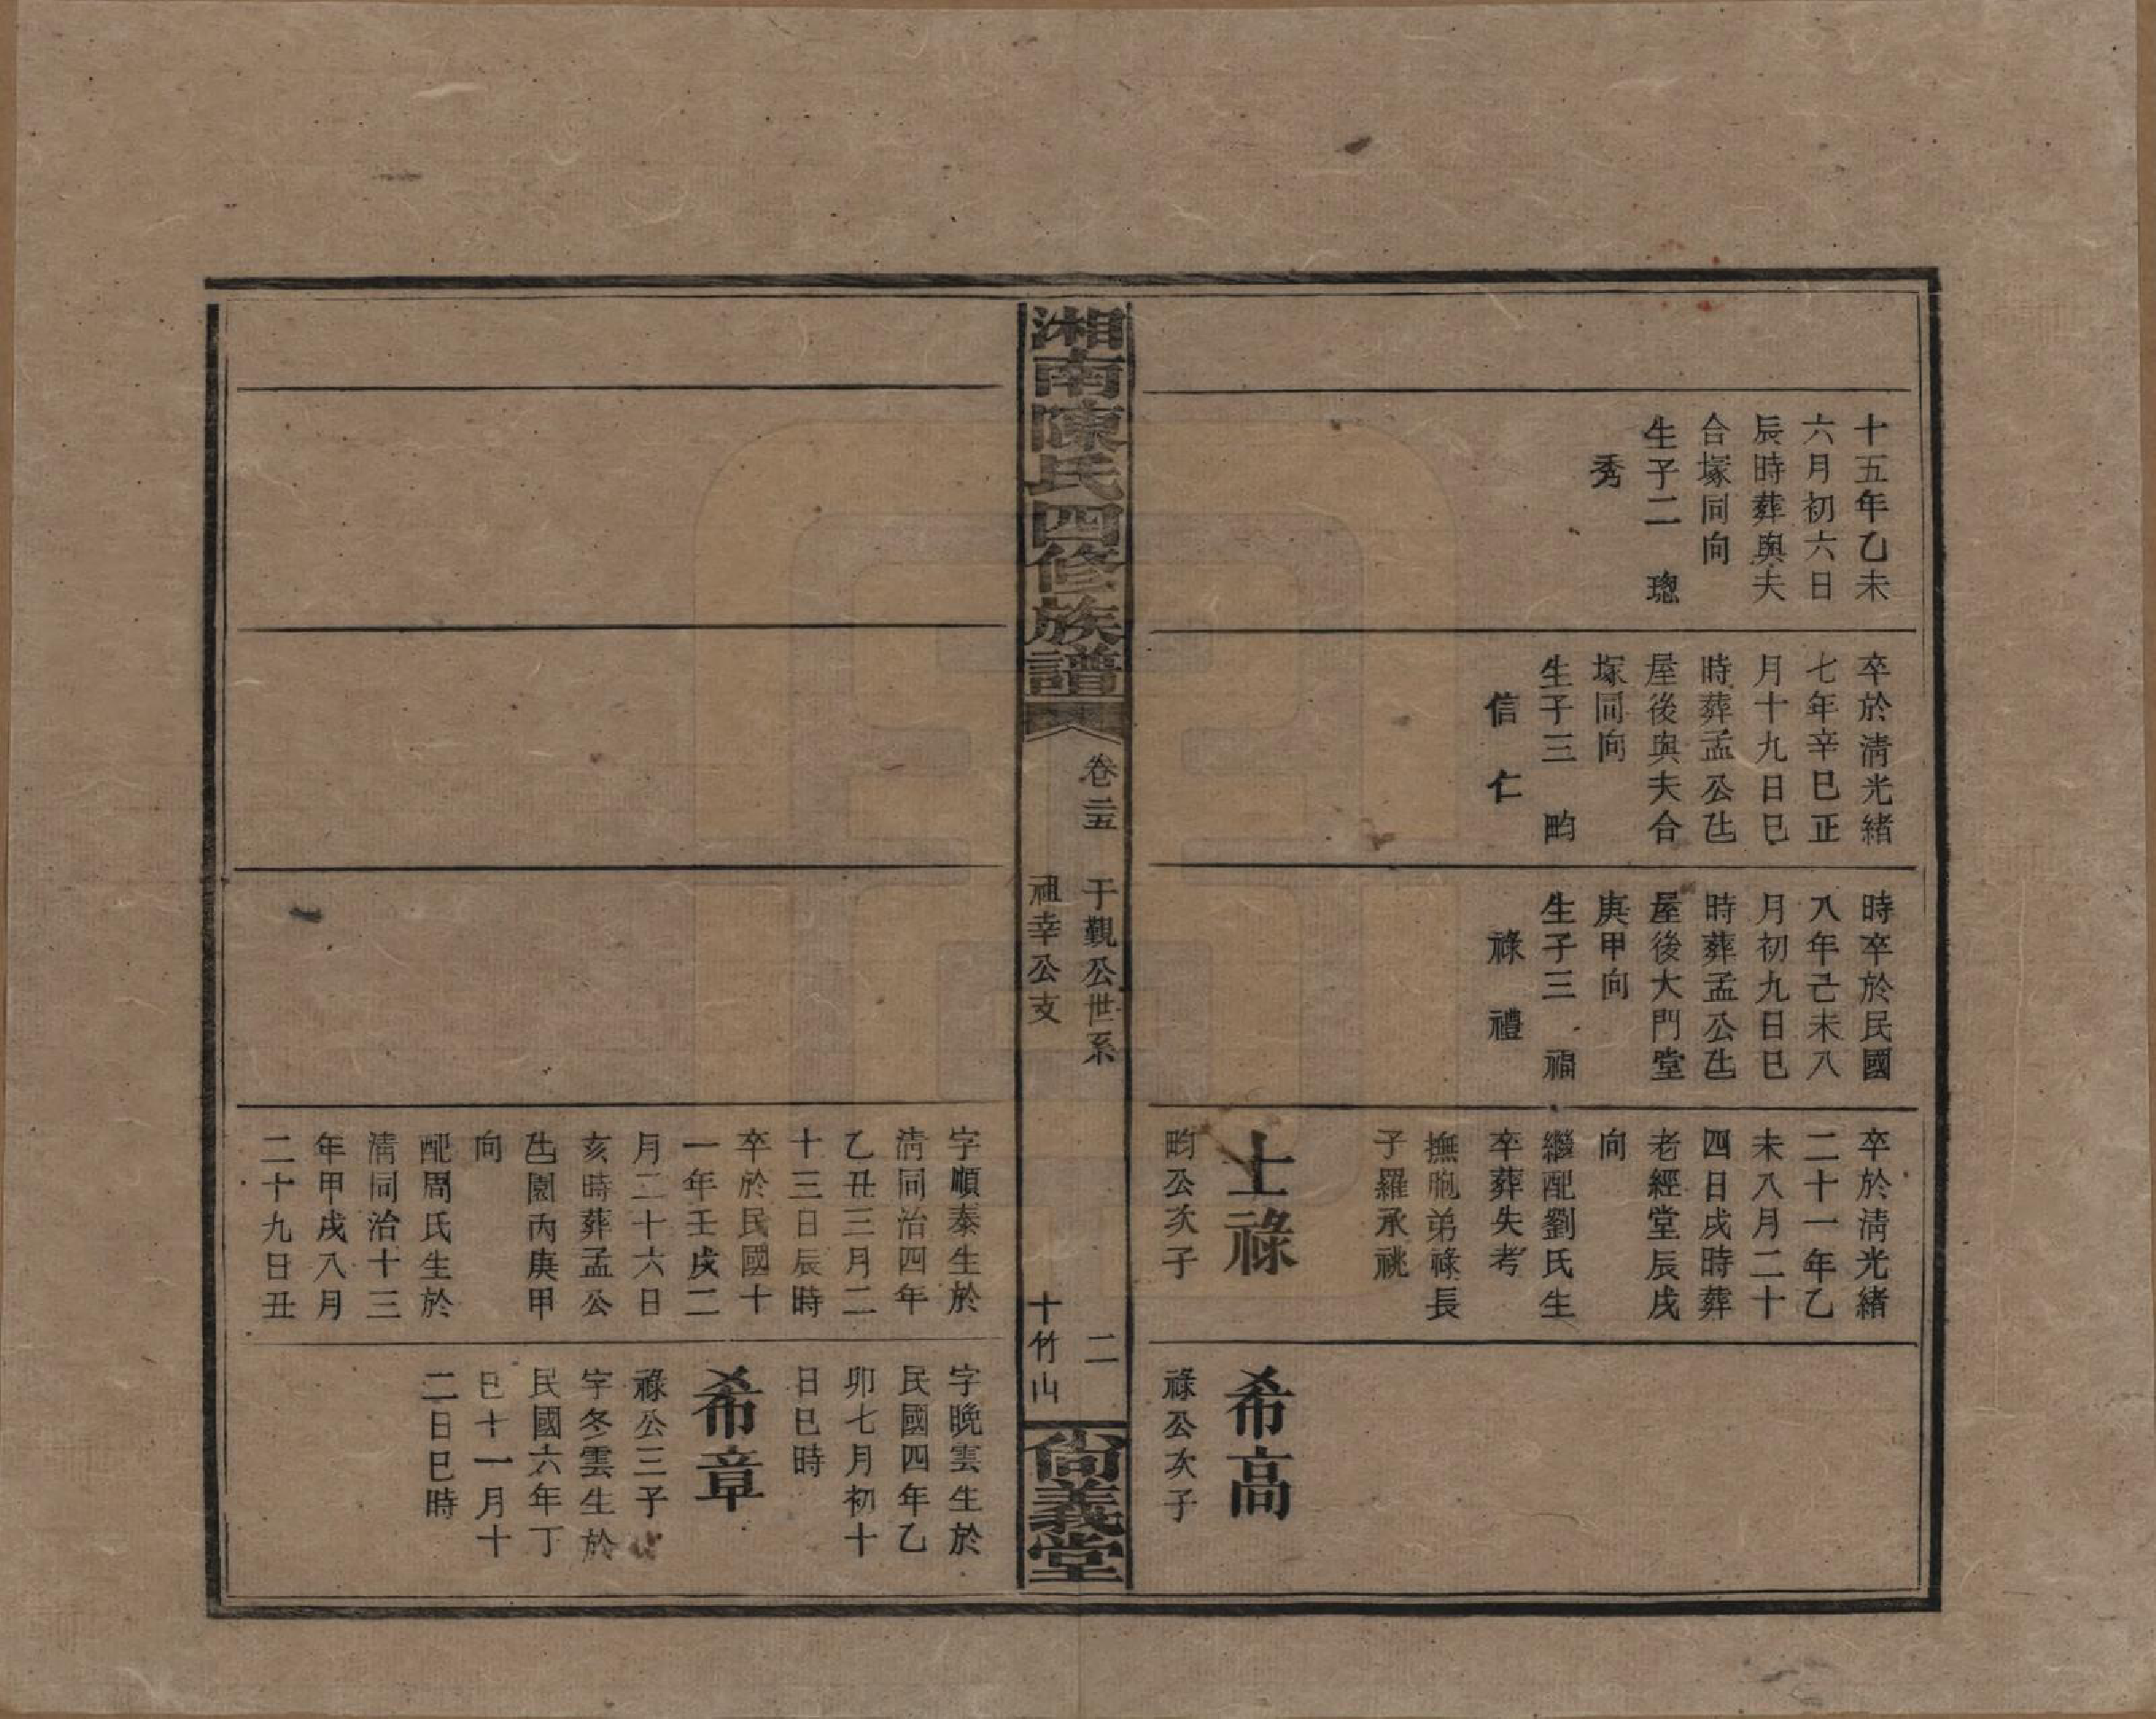 十五年乙未
六月初六日
辰時葬與夫
合塚同向
生子二　璁
秀
卒於清光緒
七年辛巳正
月十九日巳
時葬孟公𠮾
屋後與夫合
塚同向
生子三　畇
信　仁
時卒於民國
八年己未八
月初九日巳
時葬孟公𠮾
屋後大門堂
庚甲向
生子三　福
祿　禮
卒於清光緒
二十一年乙
未八月二十
四日戌時葬
老經堂辰戌
向
繼配劉氏生
卒葬失考
撫胞弟祿長
子羅承祧
士祿
畇公次子
希高
祿公次子
湘南陳氏四修族譜
卷二十五　于觀公世系　二
祖幸公支　十竹山
尙義堂
字順泰生於
清同治四年
乙丑三月二
十三日辰時
卒於民國十
一年壬戌二
月二十六日
亥時葬孟公
𠮾園丙庚甲
向
配周氏生於
清同治十三
年甲戌八月
二十九日丑
字晚雲生於
民國四年乙
卯七月初十
日巳時
希章
祿公三子
字冬雲生於
民國六年丁
巳十一月十
二日巳時